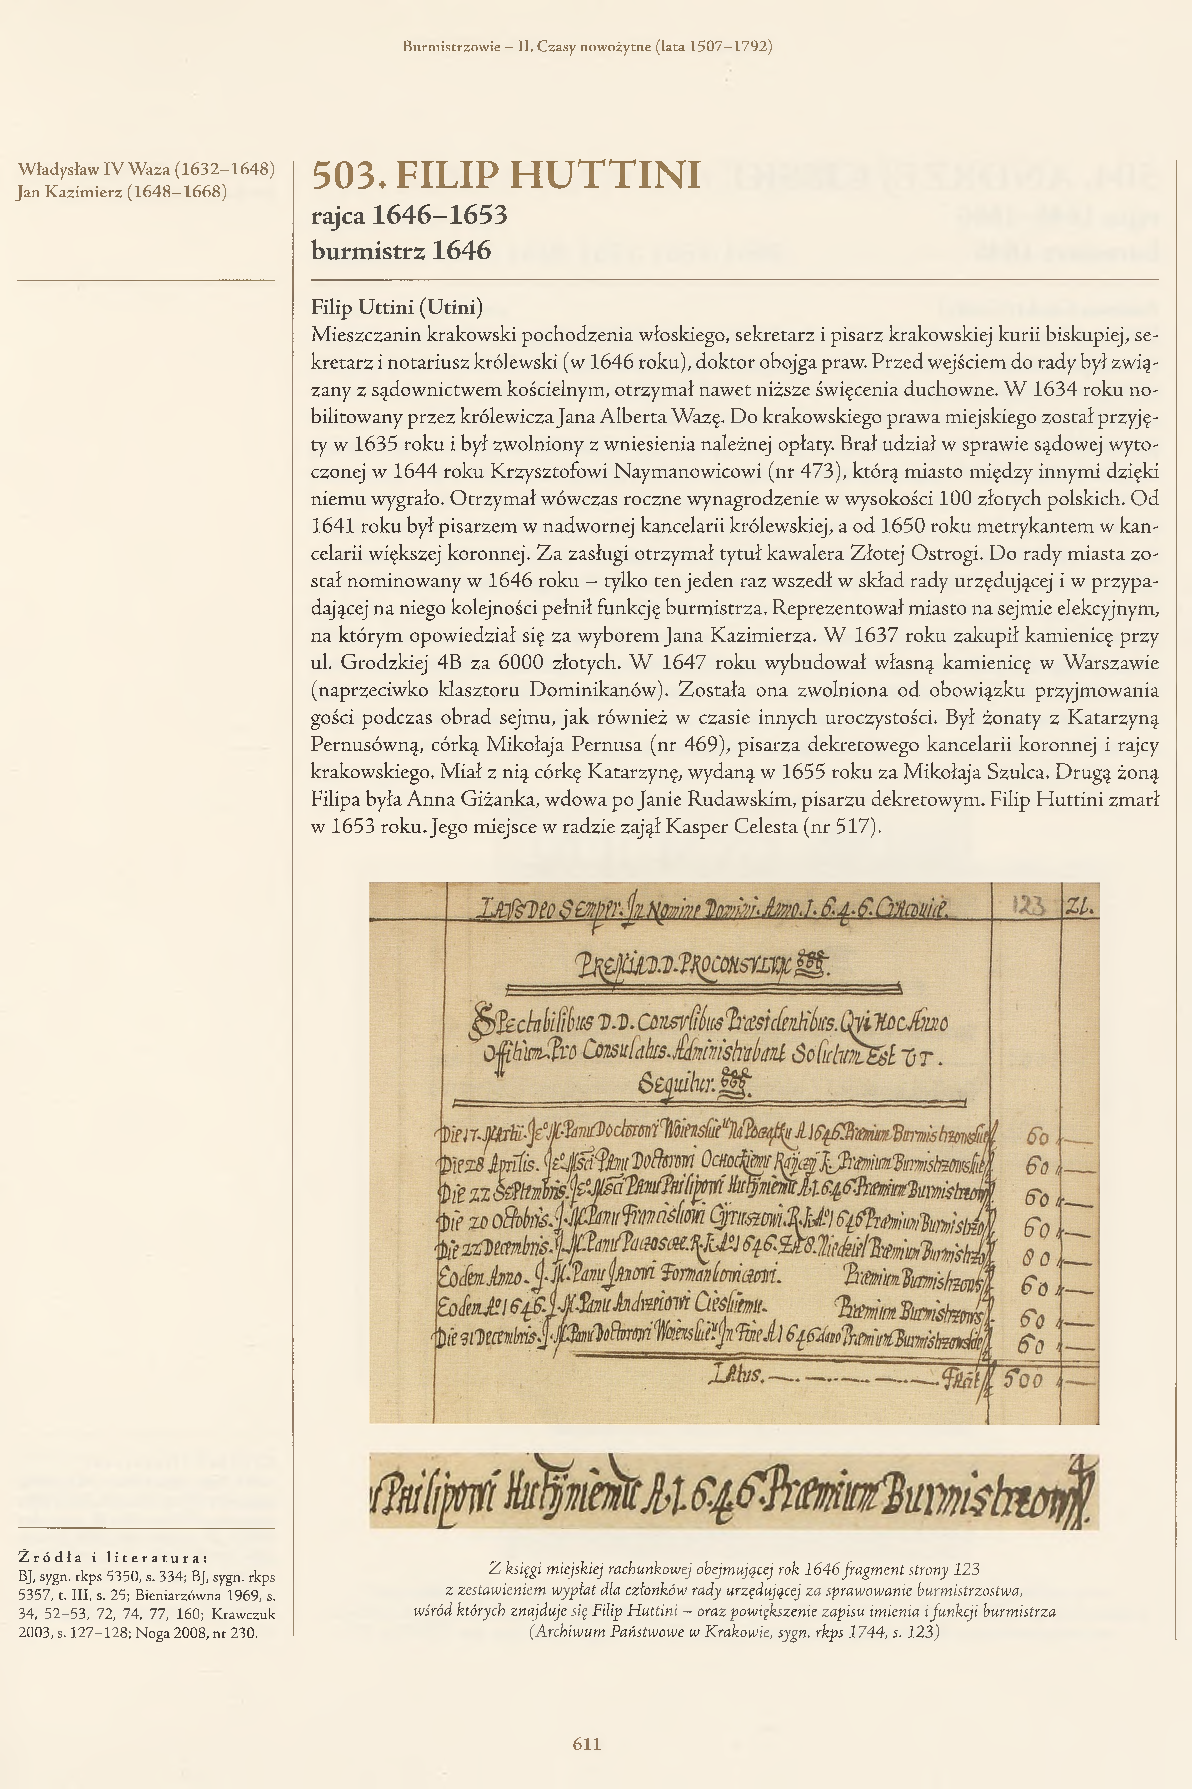 Burmistrzowie – II. Czasy nowożytne (lata 1507–1792)
Władysław IV Waza (1632–1648)
Jan Kazimierz (1648–1668)
503. FILIP HUTTINI
rajca 1646–1653
burmistrz 1646
Filip Uttini (Utini)
Mieszczanin krakowski pochodzenia włoskiego, sekretarz i pisarz krakowskiej kurii biskupiej, se-
kretarz i notariusz królewski (w 1646 roku), doktor obojga praw. Przed wejściem do rady był zwią-
zany z sądownictwem kościelnym, otrzymał nawet niższe święcenia duchowne. W 1634 roku no-
bilitowany przez królewicza Jana Alberta Wazę. Do krakowskiego prawa miejskiego został przyję-
ty w 1635 roku i był zwolniony z wniesienia należnej opłaty. Brał udział w sprawie sądowej wyto-
czonej w 1644 roku Krzysztofowi Naymanowicowi (nr 473), którą miasto między innymi dzięki
niemu wygrało. Otrzymał wówczas roczne wynagrodzenie w wysokości 100 złotych polskich. Od
1641 roku był pisarzem w nadwornej kancelarii królewskiej, a od 1650 roku metrykantem w kan-
celarii większej koronnej. Za zasługi otrzymał tytuł kawalera Złotej Ostrogi. Do rady miasta zo-
stał nominowany w 1646 roku – tylko ten jeden raz wszedł w skład rady urzędującej i w przypa-
dającej na niego kolejności pełnił funkcję burmistrza. Reprezentował miasto na sejmie elekcyjnym,
na którym opowiedział się za wyborem Jana Kazimierza. W 1637 roku zakupił kamienicę przy
ul. Grodzkiej 4B za 6000 złotych. W 1647 roku wybudował własną kamienicę w Warszawie
(naprzeciwko klasztoru Dominikanów). Została ona zwolniona od obowiązku przyjmowania
gości podczas obrad sejmu, jak również w czasie innych uroczystości. Był żonaty z Katarzyną
Pernusówną, córką Mikołaja Pernusa (nr 469), pisarza dekretowego kancelarii koronnej i rajcy
krakowskiego. Miał z nią córkę Katarzynę, wydaną w 1655 roku za Mikołaja Szulca. Drugą żoną
Filipa była Anna Giżanka, wdowa po Janie Rudawskim, pisarzu dekretowym. Filip Huttini zmarł
w 1653 roku. Jego miejsce w radzie zajął Kasper Celesta (nr 517).
Semper. In Nomine Domini. Anno. 1.6.4.6. 123 Zł.
D.D. PROCONSVLVM
Spectabilibus D.D. Consulibus Præsidentibus. Qvi Hoc Anno
Pro Consulatus. Administrabant Solutum Est VT.
Sequitur.
Die 17. Martii. Panu Doctorowi Na Początku A 1646. Præmium 60
Die 28 Aprilis. Panu Doctorowi Præmium 60
Die 22 Septembris. Panu Philipowi A.1.646. Præmium 60
Die 20 Octobris. Panu 1646 Præmium 60
Die 22 Decembris. Panu 1646. Præmium 80
Eodem Anno. Panu Janowi Præmium 60
Eodem Aº 1646. Panu Andrzeiowi Præmium 60
Die 31 Decembris. Panu Doctorowi In Fine A 1646 Præmium 60
Latus. 500
Philipowi A.1.6.4.6. Præmium
Z księgi miejskiej rachunkowej obejmującej rok 1646 fragment strony 123
z zestawieniem wypłat dla członków rady urzędującej za sprawowanie burmistrzostwa,
wśród których znajduje się Filip Huttini – oraz powiększenie zapisu imienia i funkcji burmistrza
(Archiwum Państwowe w Krakowie, sygn. rkps 1744, s. 123)
Źródła i literatura:
BJ, sygn. rkps 5350, s. 334; BJ, sygn. rkps
5357, t. III, s. 25; Bieniarzówna 1969, s.
34, 52–53, 72, 74, 77, 160; Krawczuk
2003, s. 127–128; Noga 2008, nr 230.
611